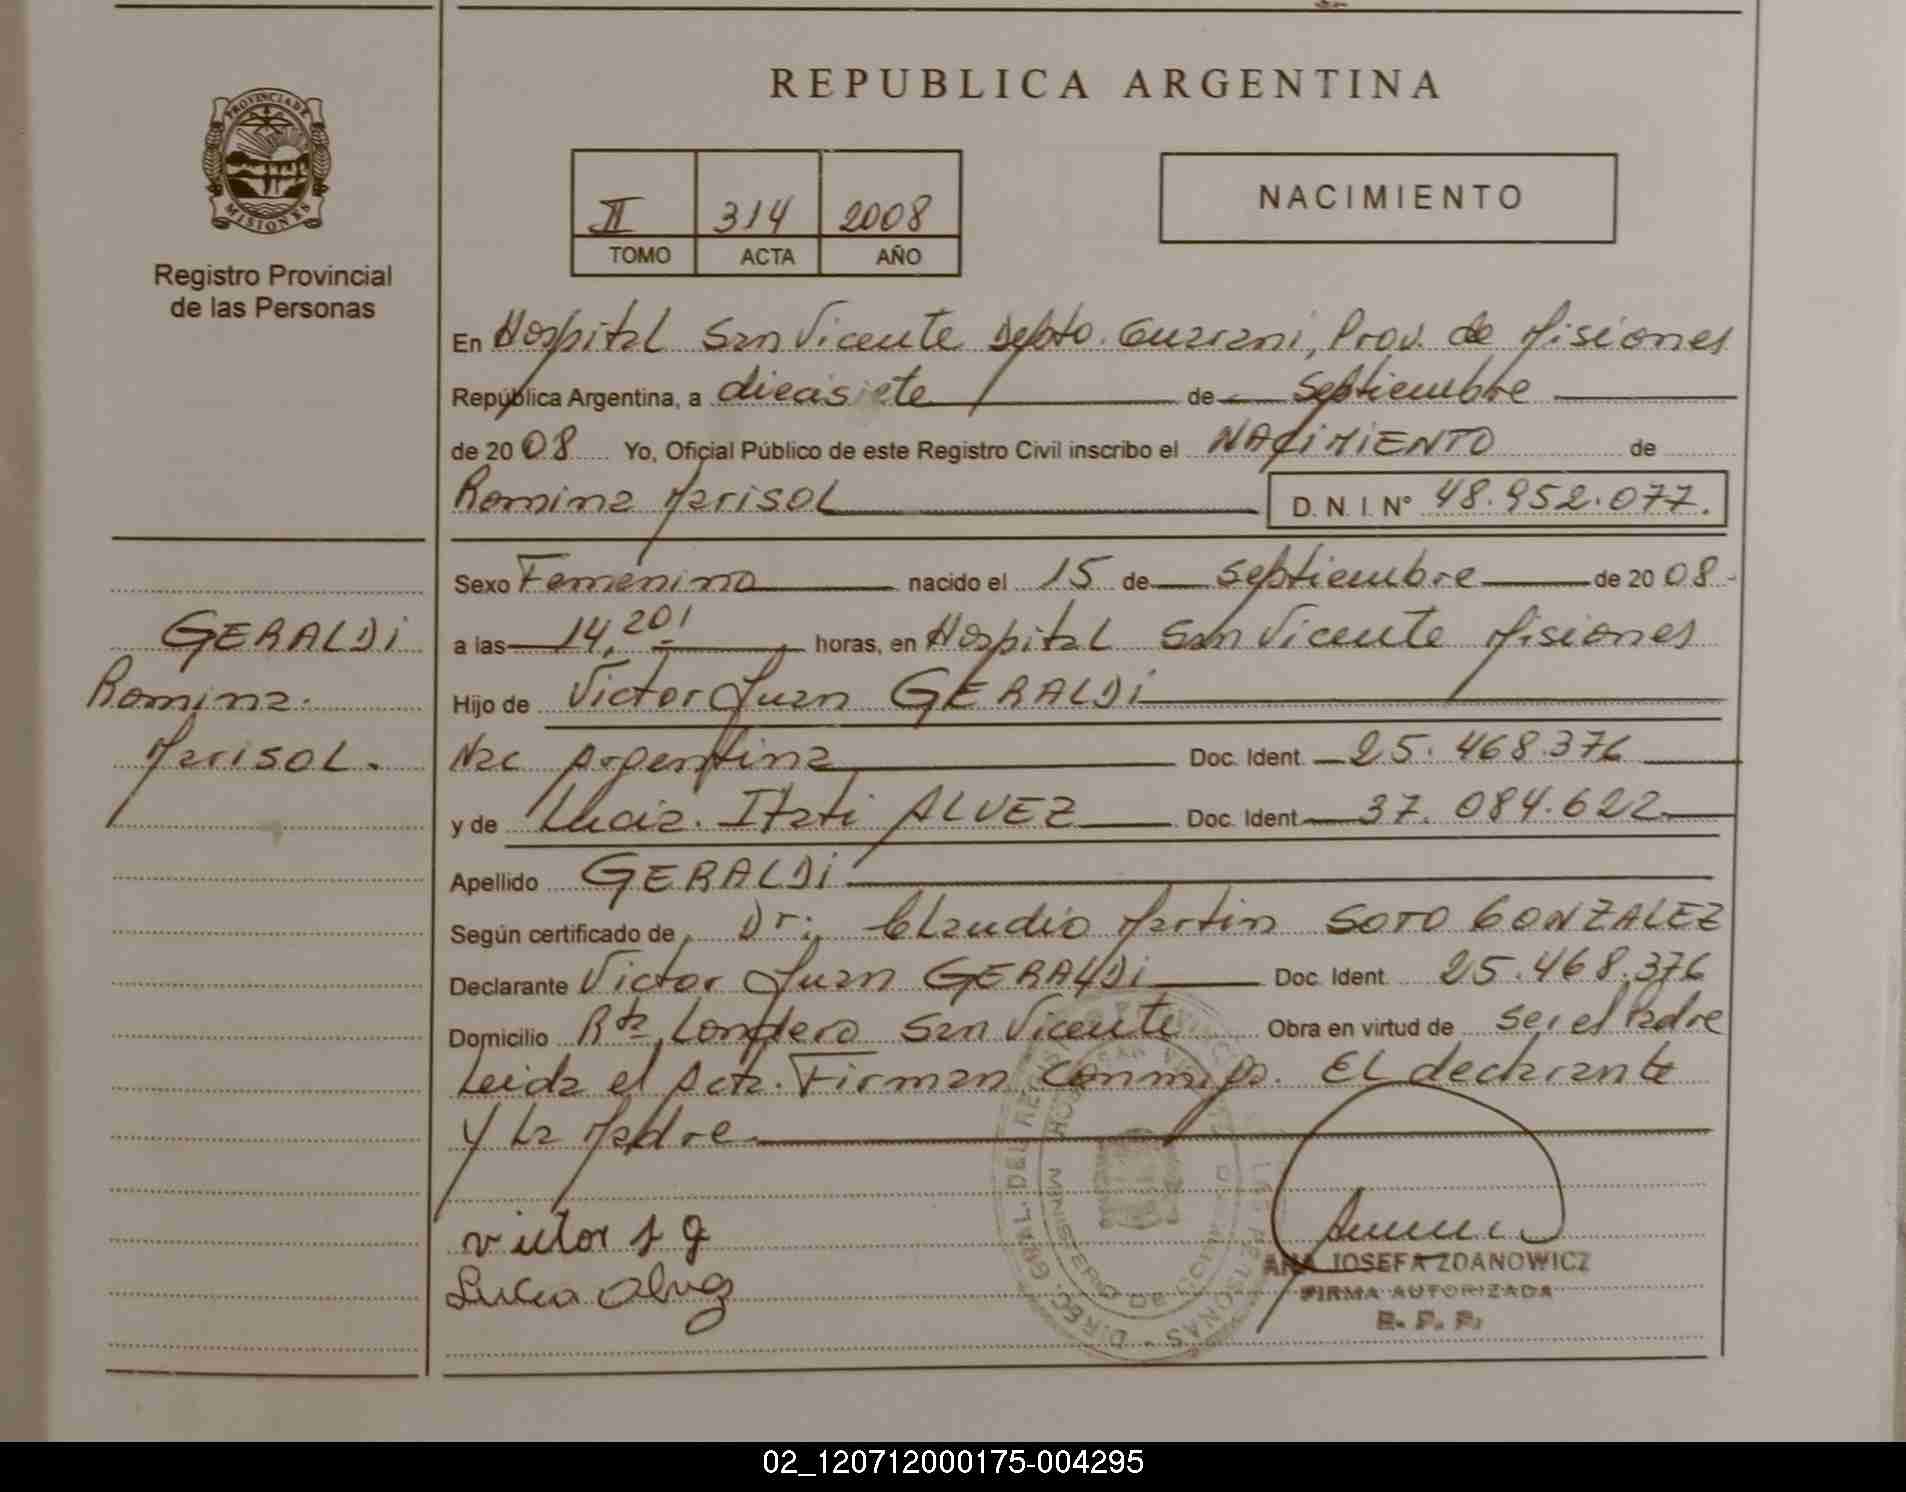 REPUBLICA ARGENTINA
PROVINCIA DE
MISIONES
Registro Provincial
de las Personas
II 314 2008
TOMO ACTA AÑO
NACIMIENTO
En Hospital San Vicente Depto. Guarani, Prov. de Misiones
República Argentina, a diecisiete de Septiembre
de 2008 Yo, Oficial Público de este Registro Civil inscribo el NACIMIENTO de
Romina Marisol D. N. I. N° 48.952.077.
Sexo Femenino nacido el 15 de Septiembre de 2008
a las 14,20 horas, en Hospital San Vicente Misiones
Hijo de Victor Juan GERALDI
Nac Argentina Doc. Ident. 25.468.376
y de Lucia Itati ALVEZ Doc. Ident. 37.084.622
Apellido GERALDI
Según certificado de Dr: Claudio Martin SOTO GONZALEZ
Declarante Victor Juan GERALDI Doc. Ident. 25.468.376
Domicilio Rta Londero San Vicente Obra en virtud de ser el Padre
Leida el Acta. Firman conmigo. El declarante
y La Madre
GERALDI
Romina
Marisol.
victor J g
Lucia Alvez
DIREC. GRAL. DEL REG
MINISTERIO DE
ANA JOSEFA ZDANOWICZ
FIRMA AUTORIZADA
R. P. P.
02_120712000175-004295